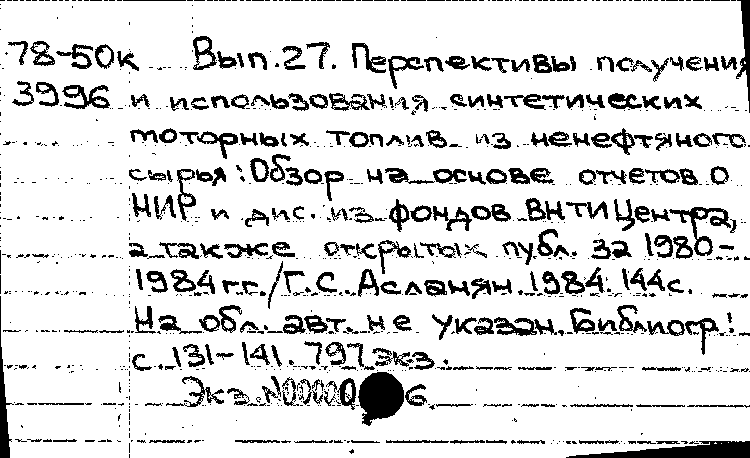 78-50к Вып.27. Перспективы получения
3996 и использования синтетических
моторных топлив из ненефтяного
сырья: Обзор на основе отчетов о
НИР и дис. из фондов ВНТИЦентра,
а также открытых публ. за 1980-
1984гг./Г.С. Асланян. 1984. 144с.
На обл. авт. не указан. Библиогр.:
с. 131-141. 797 экз.
Экз. N00000 6.